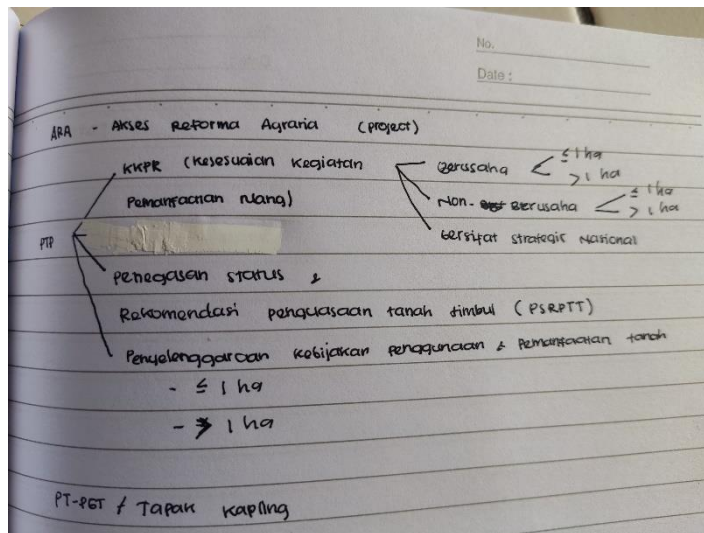 No.
Date :
ARA - Akses Reforma Agraria (project)
KKPR (Kesesuaian Kegiatan
Pemanfaatan Ruang)
Berusaha < ≤ 1 ha
> 1 ha
Non- Berusaha < ≤ 1 ha
> 1 ha
bersifat strategis Nasional
PTP
Penegasan status &
Rekomendasi penguasaan tanah timbul (PSRPTT)
Penyelenggaraan kebijakan penggunaan & pemanfaatan tanah
- ≤ 1 ha
- > 1 ha
PT-PGT / Tapak kapling